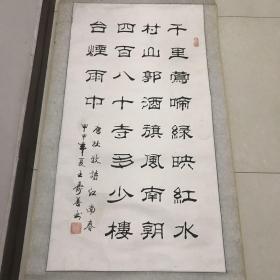 千里鶯啼綠映紅水
村山郭酒旗風南朝
四百八十寺多少樓
台煙雨中
唐杜牧詩江南春
甲申年夏王